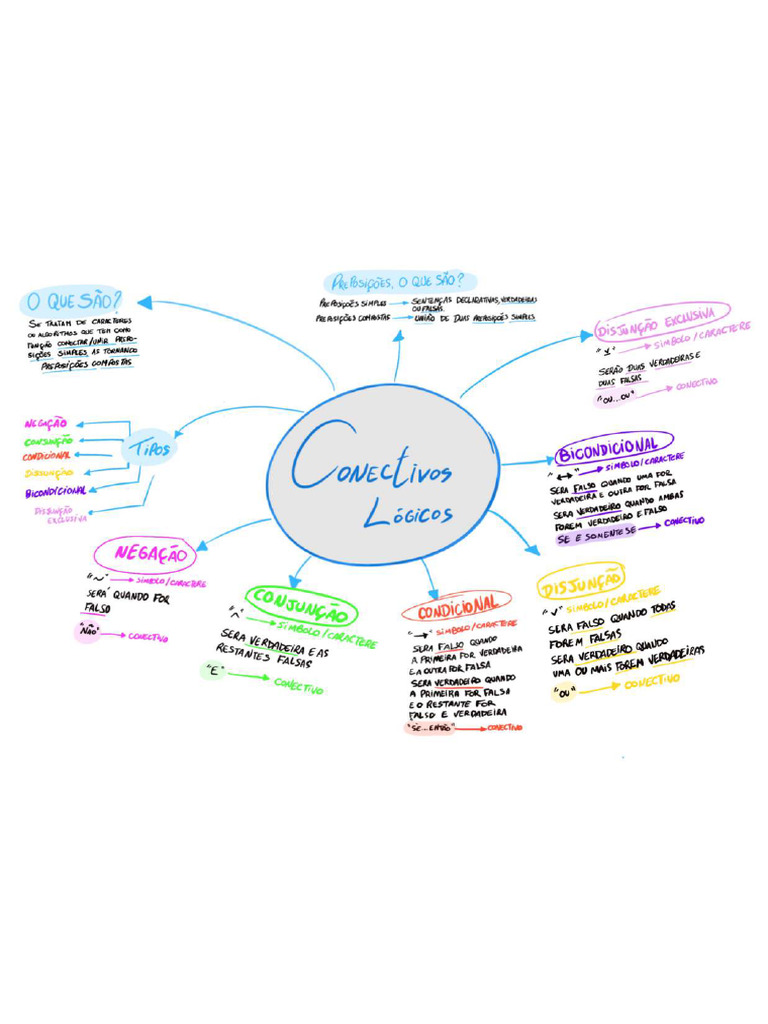 Conectivos
Lógicos
O QUE SÃO?
SE TRATAM DE CARACTERES
OU ALGORITMOS QUE TEM COMO
FUNÇÃO CONECTAR/UNIR PREPO-
SIÇÕES SIMPLES, AS TORNANDO
PREPOSIÇÕES COMPOSTAS
PREPOSIÇÕES, O QUE SÃO?
PREPOSIÇÕES SIMPLES → SENTENÇAS DECLARATIVAS, VERDADEIRAS
OU FALSAS.
PREPOSIÇÕES COMPOSTAS → UNIÃO DE DUAS PREPOSIÇÕES SIMPLES
TIPOS
NEGAÇÃO
CONJUNÇÃO
CONDICIONAL
DISJUNÇÃO
BICONDICIONAL
DISJUNÇÃO
EXCLUSIVA
NEGAÇÃO
"~" → SIMBOLO/CARACTERE
SERÁ QUANDO FOR
FALSO
"NÃO" → CONECTIVO
CONJUNÇÃO
"^" → SIMBOLO/CARACTERE
SERA VERDADEIRA E AS
RESTANTES FALSAS
"E" → CONECTIVO
CONDICIONAL
"→" SIMBOLO/CARACTERE
SERA FALSO QUANDO
A PRIMEIRA FOR VERDADEIRA
E A OUTRA FOR FALSA
SERA VERDADEIRO QUANDO
A PRIMEIRA FOR FALSA
E O RESTANTE FOR
FALSO E VERDADEIRA
"SE...ENTÃO" → CONECTIVO
DISJUNÇÃO
"v" SIMBOLO/CARACTERE
SERA FALSO QUANDO TODAS
FOREM FALSAS
SERA VERDADEIRO QUANDO
UMA OU MAIS FOREM VERDADEIRAS
"OU" → CONECTIVO
BICONDICIONAL
"↔" → SIMBOLO/CARACTERE
SERA FALSO QUANDO UMA FOR
VERDADEIRA E OUTRA FOR FALSA
SERA VERDADEIRO QUANDO AMBAS
FOREM VERDADEIRO E FALSO
SE E SOMENTE SE → CONECTIVO
DISJUNÇÃO EXCLUSIVA
"⊻" → SIMBOLO/CARACTERE
SERÃO DUAS VERDADEIRAS E
DUAS FALSAS
"OU...OU" → CONECTIVO